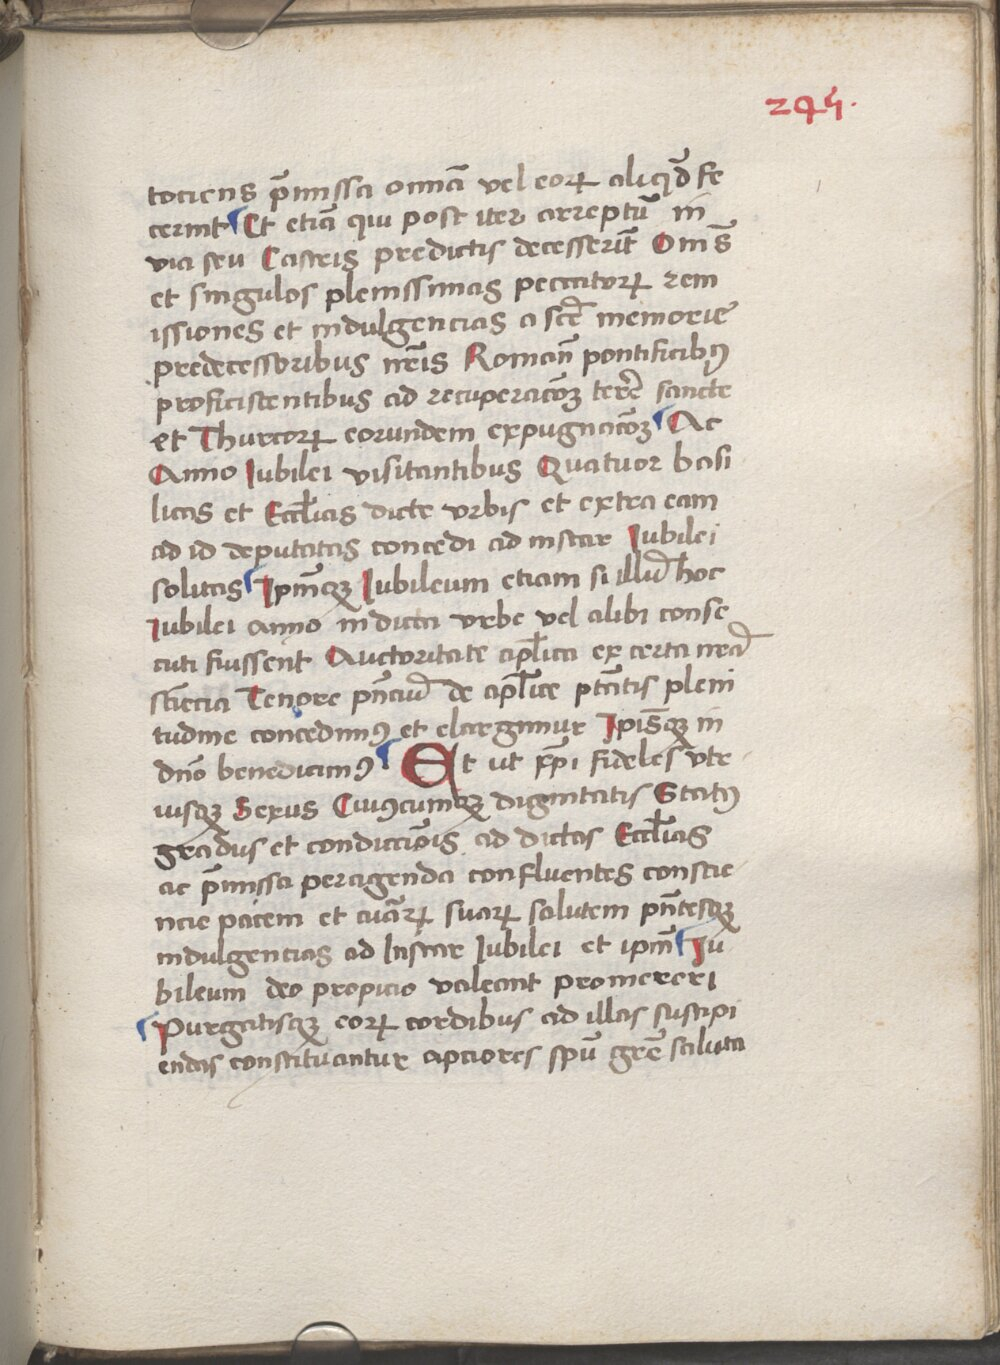 245.
tociens p̄missa omnia vel eoꝝ aliqd̄ fe
cerint Et etiā qui post iter arreptū in
via seu Castris predictis decesserīt Om̄s
et singulos plenissimas peccatoꝝ rem
issiones et indulgencias a scē memorie
predecessoribus nr̄is Romān pontificibꝰ
proficiscentibus ad recuperacōꝫ terrē sancte
et Thurcoꝝ eorundem expugnacōꝫ Ac
Anno Iubilei visitantibus Quatuor basi
licas et Eccl̄ias dicte vrbis et extra eam
ad id deputatas concedi ad instar Iubilei
solitas Ipm̄qꝫ Iubileum etiam si illud hoc
Iubilei anno in dicta vrbe vel alibi conse
cuti fuissent Auctoritate apl̄ica ex certa nr̄a
sciēcia Tenore pn̄ciū de apl̄ice ptātis pleni
tudine concedimꝰ et elargimur Ipīsqꝫ in
dnō benedicimꝰ Et ut xp̄i fideles vtr
iusqꝫ Sexus Cuiꝰcumqꝫ dignitatis Statꝰ
gradus et condicciōis ad dictas Eccl̄ias
ac p̄missa peragenda confluentes conscie
ncie pacem et aīarꝝ suarꝝ salutem pn̄tesqꝫ
indulgencias ad Instar Iubilei et ipm̄ Iu
bileum deo propicio valeant promereri
Purgatisqꝫ eoꝝ cordibus ad illas suscipi
endas constituantur apciores spū grē saluta